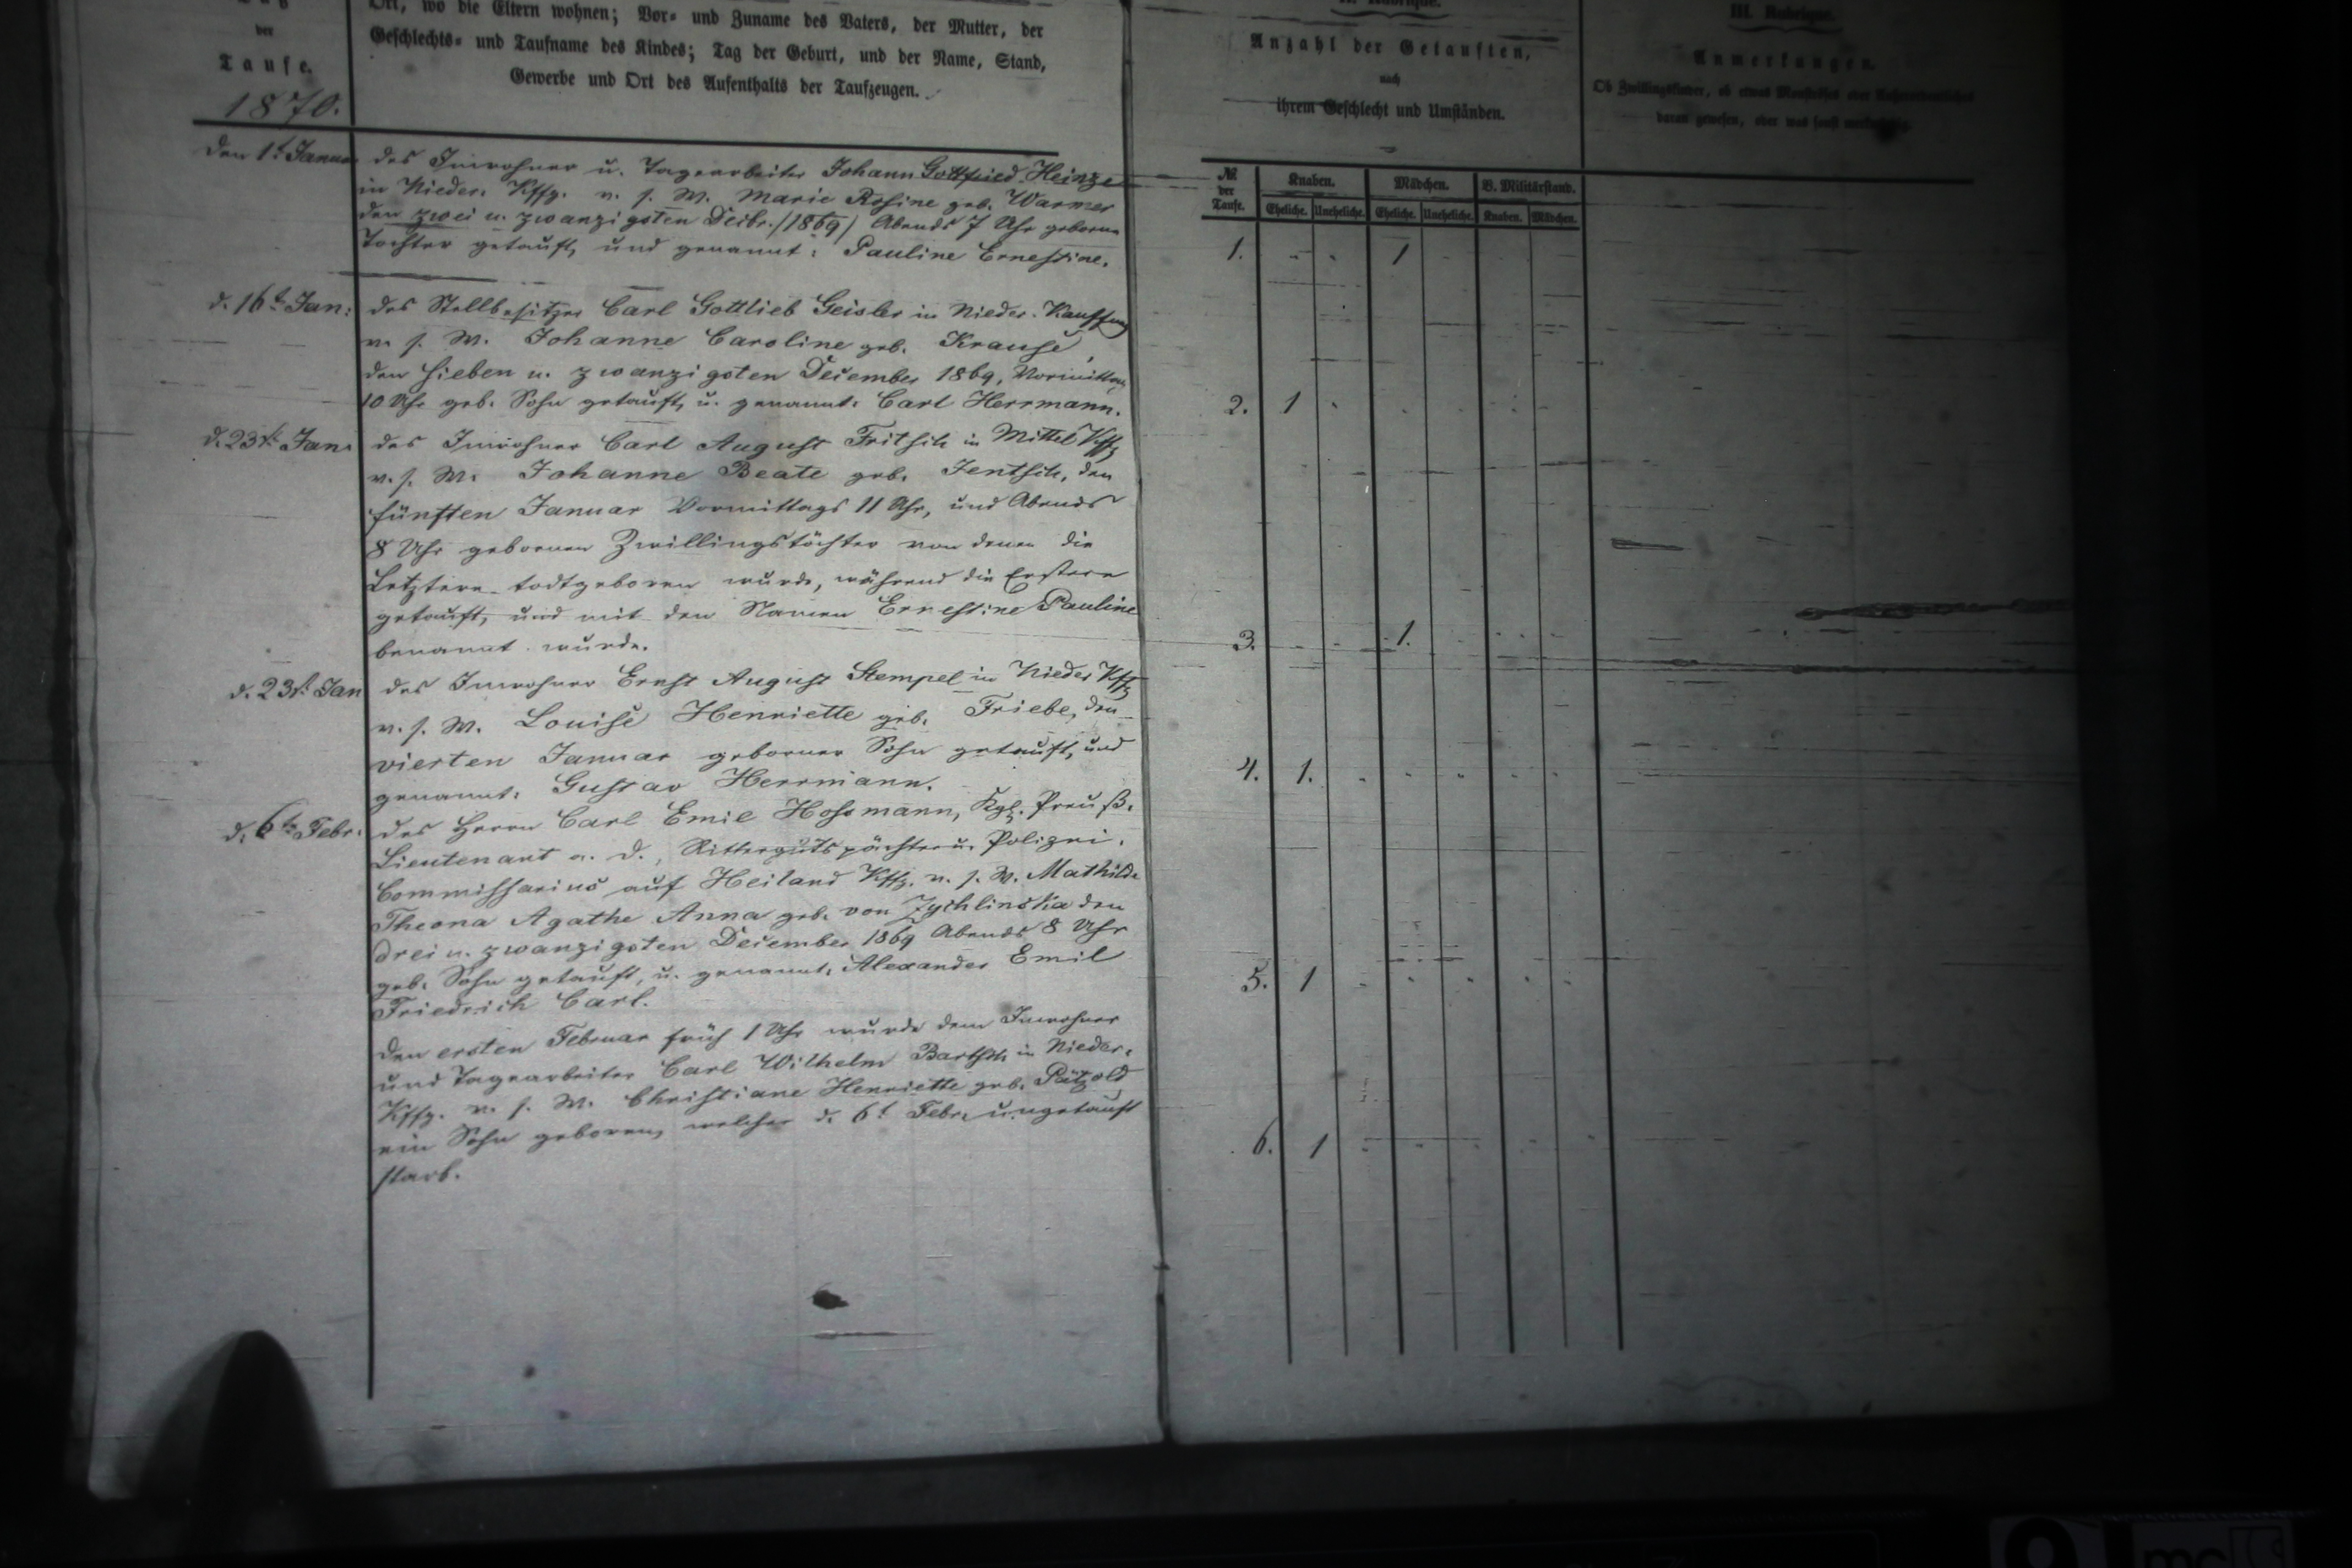 der
Taufe.
1870.
Ort, wo die Eltern wohnen; Vor- und Zuname des Vaters, der Mutter, der
Geschlechts- und Taufname des Kindes; Tag der Geburt, und der Name, Stand,
Gewerbe und Ort des Aufenthalts der Taufzeugen.
den 1t. Januar
des Inwohner u. Tagearbeiter Johann Gottfried Heinze
in Nieder. Kffg. v. s. W. Marie Rosine geb. Warmer
den zwei u. zwanzigsten Decbr. /1869/ Abends 7 Uhr geborne
Tochter getauft, und genannt: Pauline Ernestine.
d. 16t. Jan:
des Stellbesitzer Carl Gottlieb Geisler in Nieder-Kauffung
v. s. W. Johanne Caroline geb. Krause,
den sieben u. zwanzigsten December 1869, Vormittag
10 Uhr geb. Sohn getauft, u. genannt: Carl Herrmann.
d. 23t. Jan.
des Inwohner Carl August Fritsch in Mittel Kffg
v. s. W. Johanne Beate geb. Jentsch, den
fünften Januar Vormittags 11 Uhr, und Abends
8 Uhr gebornen Zwillingstöchter von denen die
Letztere todtgeboren wurde, während die Erstere
getauft, und mit den Namen Ernestine Pauline
benannt wurde.
d. 23t. Jan
des Inwohner Ernst August Stempel in Nieder Kffg
v. s. W. Louise Henriette geb. Friebe, den
vierten Januar geborner Sohn getauft, und
genannt: Gustav Herrmann.
d. 6t. Febr.
des Herrn Carl Emil Hossmann, Kgl. Preuß.
Lieutenant a. D., Rittergutspächter u. Polizei.
Commissarius auf Heiland Kffg. v. s. W. Mathilde
Theona Agathe Anna geb. von Zychlinska den
drei u. zwanzigsten December 1869 Abends 8 Uhr
geb. Sohn getauft, u. genannt: Alexander Emil
Friedrich Carl.
Den ersten Februar früh 1 Uhr wurde dem Inwohner
und Tagearbeiter Carl Wilhelm Bartsch in Nieder.
Kffg. v. s. W. Christiane Henriette geb. Pätzold
ein Sohn geboren, welcher d. 6t Febr. ungetauft
starb.
II. Rubrique.
Anzahl der Getauften,
nach
ihrem Geschlecht und Umständen.
№ der Taufe.
Knaben. Mädchen. B. Militärstand.
Eheliche. Uneheliche. Eheliche. Uneheliche. Knaben. Mädchen.
1. - - 1 -
2. 1 - - - - -
3. - - 1. - - -
4. 1. - - - - -
5. 1 - - - - -
6. 1 - - - - -
III. Rubrique.
Anmerkungen.
Ob Zwillingskinder, ob etwas
daran gewesen, oder was sonst